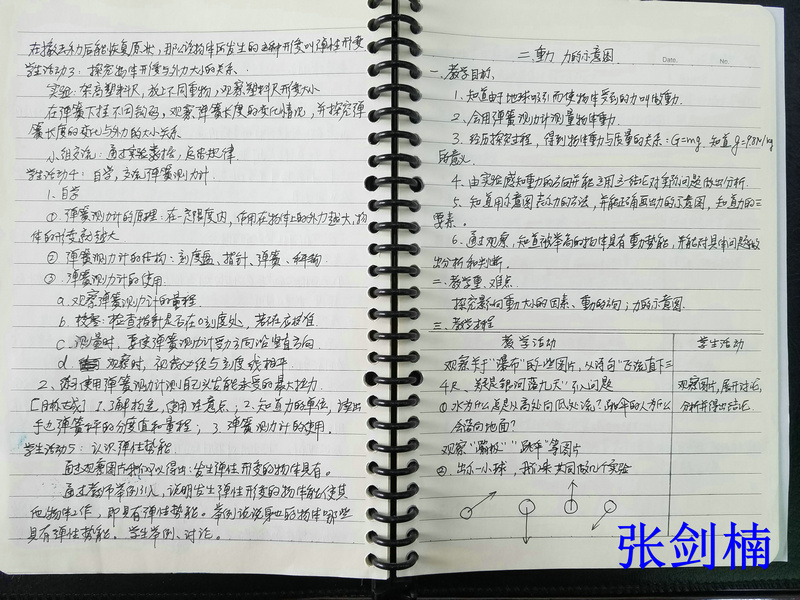 在撤去外力后能恢复原状,那么该物体所发生的这种形变叫弹性形变
学生活动3:探究物体形变与外力大小的关系.
实验:架高塑料尺,放上不同重物,观察塑料尺形变大小
在弹簧下挂不同钩码,观察弹簧长度的变化情况,并探究弹
簧长度的变化与外力的大小关系
小组交流:通过实验数据,总结规律.
学生活动4:自学,交流弹簧测力计.
1.自学
① 弹簧测力计的原理:在一定限度内,作用在物体上的外力越大,物
体的形变就越大
② 弹簧测力计的结构:刻度盘、指针、弹簧、挂钩
③ 弹簧测力计的使用
a.观察弹簧测力计的量程.
b.校零:检查指针是否在0刻度处,若不在应校值
c.测量时,要使弹簧测力计受力方向沿竖直方向
d. 观察时,视线必须与刻度线相平
2、练习使用弹簧测力计测自己头发能承受的最大拉力.
[目标达成] 1.了解构造,使用注意点;2.知道力的单位,读出
手边弹簧秤的分度值和量程;3.弹簧测力计的使用.
学生活动5:认识弹性势能
通过观察图片我们可以得出:发生弹性形变的物体具有。
通过教师举例引入,说明发生弹性形变的物体能使其
他物体工作,即具有弹性势能。举例说说身边的物体哪些
具有弹性势能。学生举例、讨论。
二.重力 力的示意图.
Date. No.
一.教学目标.
1.知道由于地球吸引而使物体受到的力叫做重力.
2、会用弹簧测力计测量物体重力.
3.经历探究过程,得到物体重力与质量的关系:G=mg.知道g=9.8N/kg
所意义.
4.由实验感知重力的方向并能运用这一结论对实际问题做出分析.
5、知道用示意图表示力的方法,并能正确画出力的示意图,知道力的三
要素。
6.通过观察,知道被举高的物体具有重力势能,并能对具体问题做
出分析和判断.
二.教学重、难点.
探究影响重力大小的因素、重力的方向;力的示意图.
三.教学过程
教学活动 学生活动
观察关于“瀑布”的一些图片,从诗句“飞流直下三
千尺,疑是银河落九天”引入问题 观察图片,展开讨论,
① 水为什么总是从高处向低处流?跳伞的人为什么 分析并得出结论
会落向地面?
观察“蹦极”“跳伞”等图片
②.出示一小球,我们来共同做几个实验
张剑楠